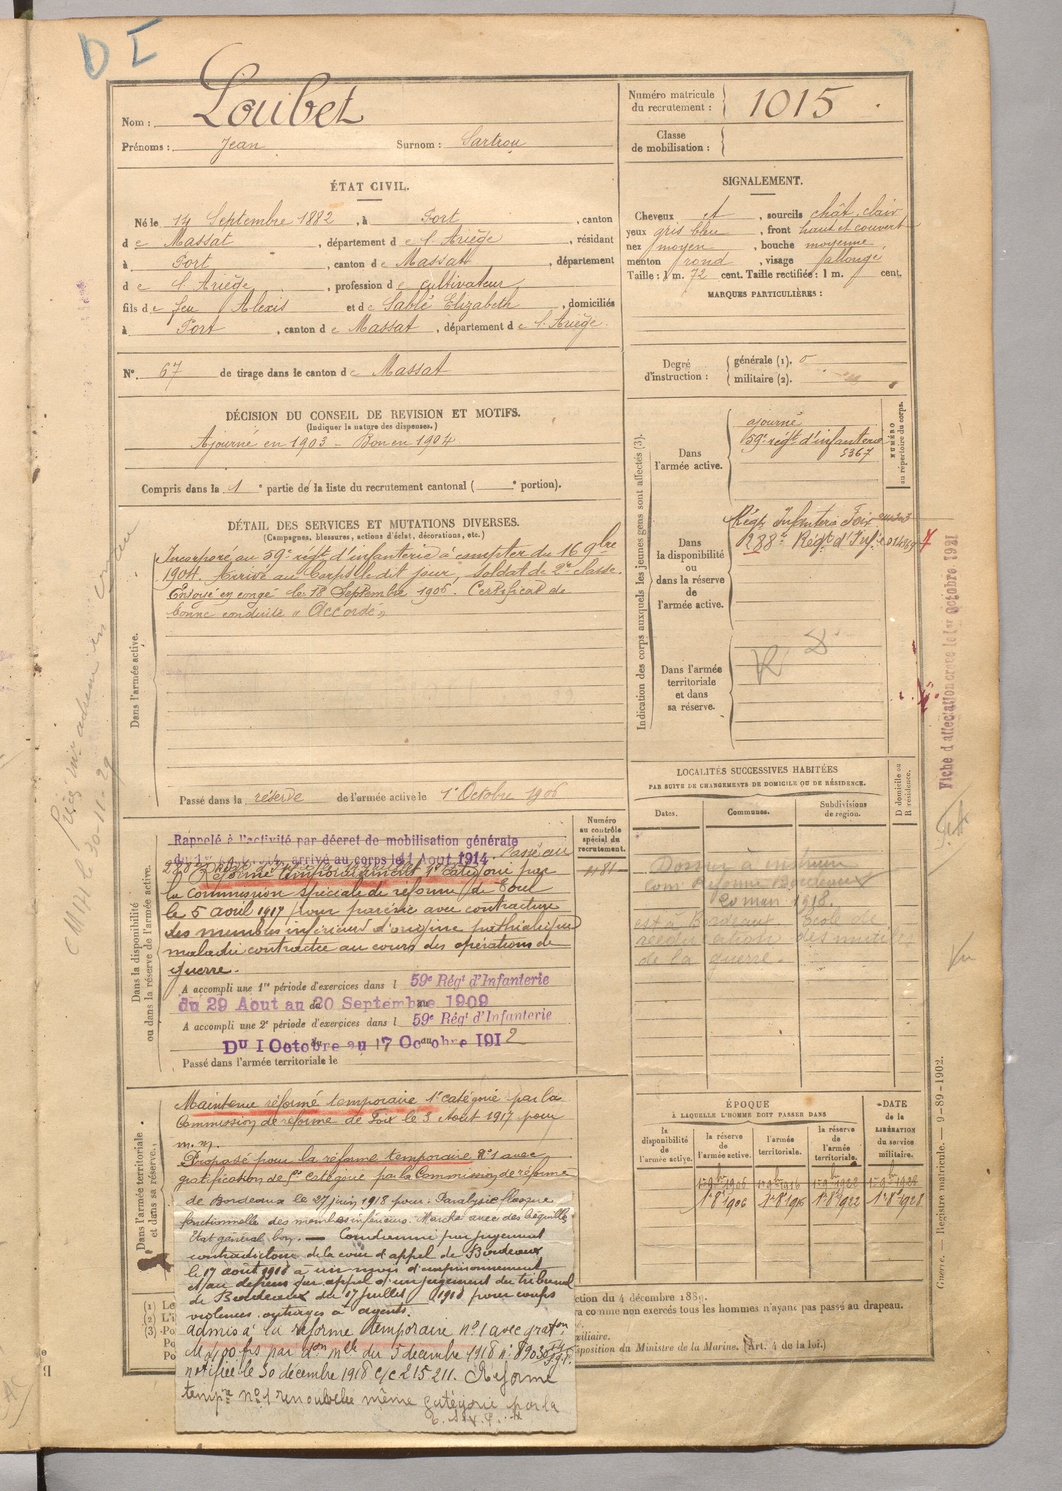 D I
Nom : Loubet
Prénoms : Jean Surnom : Sartrou
Numéro matricule du recrutement : 1015
Classe de mobilisation :
ÉTAT CIVIL.
Né le 14 Septembre 1882, à Port, canton
de Massat, département de l'Ariège, résidant
à Port, canton de Massat, département
de l'Ariège, profession de cultivateur
fils de feu Alexis et de Sablé Elizabeth, domiciliés
à Port, canton de Massat, département de l'Ariège.
N° 67 de tirage dans le canton de Massat
SIGNALEMENT.
Cheveux et, sourcils chât. clair
yeux gris bleu, front haut et couvert
nez moyen, bouche moyenne,
menton rond, visage allongé
Taille : 1 m. 72 cent. Taille rectifiée : 1 m. cent.
MARQUES PARTICULIÈRES :
Degré d'instruction : générale (1). 0
militaire (2).
DÉCISION DU CONSEIL DE REVISION ET MOTIFS.
(Indiquer la nature des dispenses.)
Ajourné en 1903 - Bon en 1904
Compris dans la 1e partie de la liste du recrutement cantonal ( e portion).
DÉTAIL DES SERVICES ET MUTATIONS DIVERSES.
(Campagnes, blessures, actions d'éclat, décorations, etc.)
Dans l'armée active.
Incorporé au 59e régt d'infanterie à compter du 16 9bre
1904. Arrivé au corps le dit jour. Soldat de 2e classe.
Envoyé en congé le 18 Septembre 1906. Certificat de
bonne conduite « Accordé »
Passé dans la réserve de l'armée active le 1er Octobre 1906
Indication des corps auxquels les jeunes gens sont affectés (3).
NUMÉRO au répertoire du corps.
Dans l'armée active.
ajourné
59e régt d'infanterie
5367
Dans la disponibilité ou dans la réserve de l'armée active.
Régt Infanterie Foix
288e Régt d'Inf.ie
Dans l'armée territoriale et dans sa réserve.
Fiche d'affectation créée le 1er Octobre 1921
LOCALITÉS SUCCESSIVES HABITÉES
PAR SUITE DE CHANGEMENTS DE DOMICILE OU DE RÉSIDENCE.
D domicile ou R résidence.
Dates. Communes. Subdivisions de region.
Dossier à instruire
Com. Réforme Bordeaux
20 mars 1918.
est à Bordeaux École de
rééducation des mutilés
de la guerre.
Dans la disponibilité ou dans la réserve de l'armée active.
Numéro au contrôle spécial du recrutement.
Rappelé à l'activité par décret de mobilisation générale
du 1er Août 1914, arrivé au corps le 1 Aout 1914. Passé au
Réformé temporairement 1e catégorie par
la Commission spéciale de réforme de Toul
le 5 avril 1917 pour parésie avec contracture
des membres inférieurs d'origine
maladie contractée au cours des opérations de
guerre.
A accompli une 1re période d'exercices dans l 59e Régt d'Infanterie
du 29 Aout au 20 Septembre 1909
A accompli une 2e période d'exercices dans l 59e Régt d'Infanterie
Du 1 Octobre au 17 Octobre 1912
Passé dans l'armée territoriale le
Dans l'armée territoriale et dans sa réserve.
Maintenu réformé temporaire 1e catégorie par la
Commission de réforme de Foix le 3 Août 1917 pour
m.m.
Proposé pour la réforme temporaire n°1 avec
gratification de 5e catégorie par la Commission de réforme
de Bordeaux le 27 juin 1918 pour : Paralysie flasque
fonctionnelle des membres inférieurs. Marche avec des béquilles
État général bon. — Condamné par jugement
contradictoire de la cour d'appel de Bordeaux
le 17 août 1918 à un mois d'emprisonnement
et au dépens sur appel d'un jugement du tribunal
de Bordeaux du 17 juillet 1918 pour coups
violences, outrages à agents.
admis à la réforme temporaire n°1 avec graton
par don mlle du 5 décembre 1918 n°
notifiée le 30 décembre 1918 c/c 215 211. Réforme
tempre n°1 renouvelée même catégorie par la
ÉPOQUE
À LAQUELLE L'HOMME DOIT PASSER DANS
DATE de la LIBÉRATION du service militaire.
la disponibilité de l'armée active.
la réserve de l'armée active.
l'armée territoriale.
la réserve de l'armée territoriale.
1er 8bre 1906
Guerre. — Registre matricule. — 9-89-1902.
ction du 4 décembre 1889.
ra comme non exercés tous les hommes n'ayant pas passé au drapeau.
xiliaire.
sposition du Ministre de la Marine. (Art. 4 de la loi.)